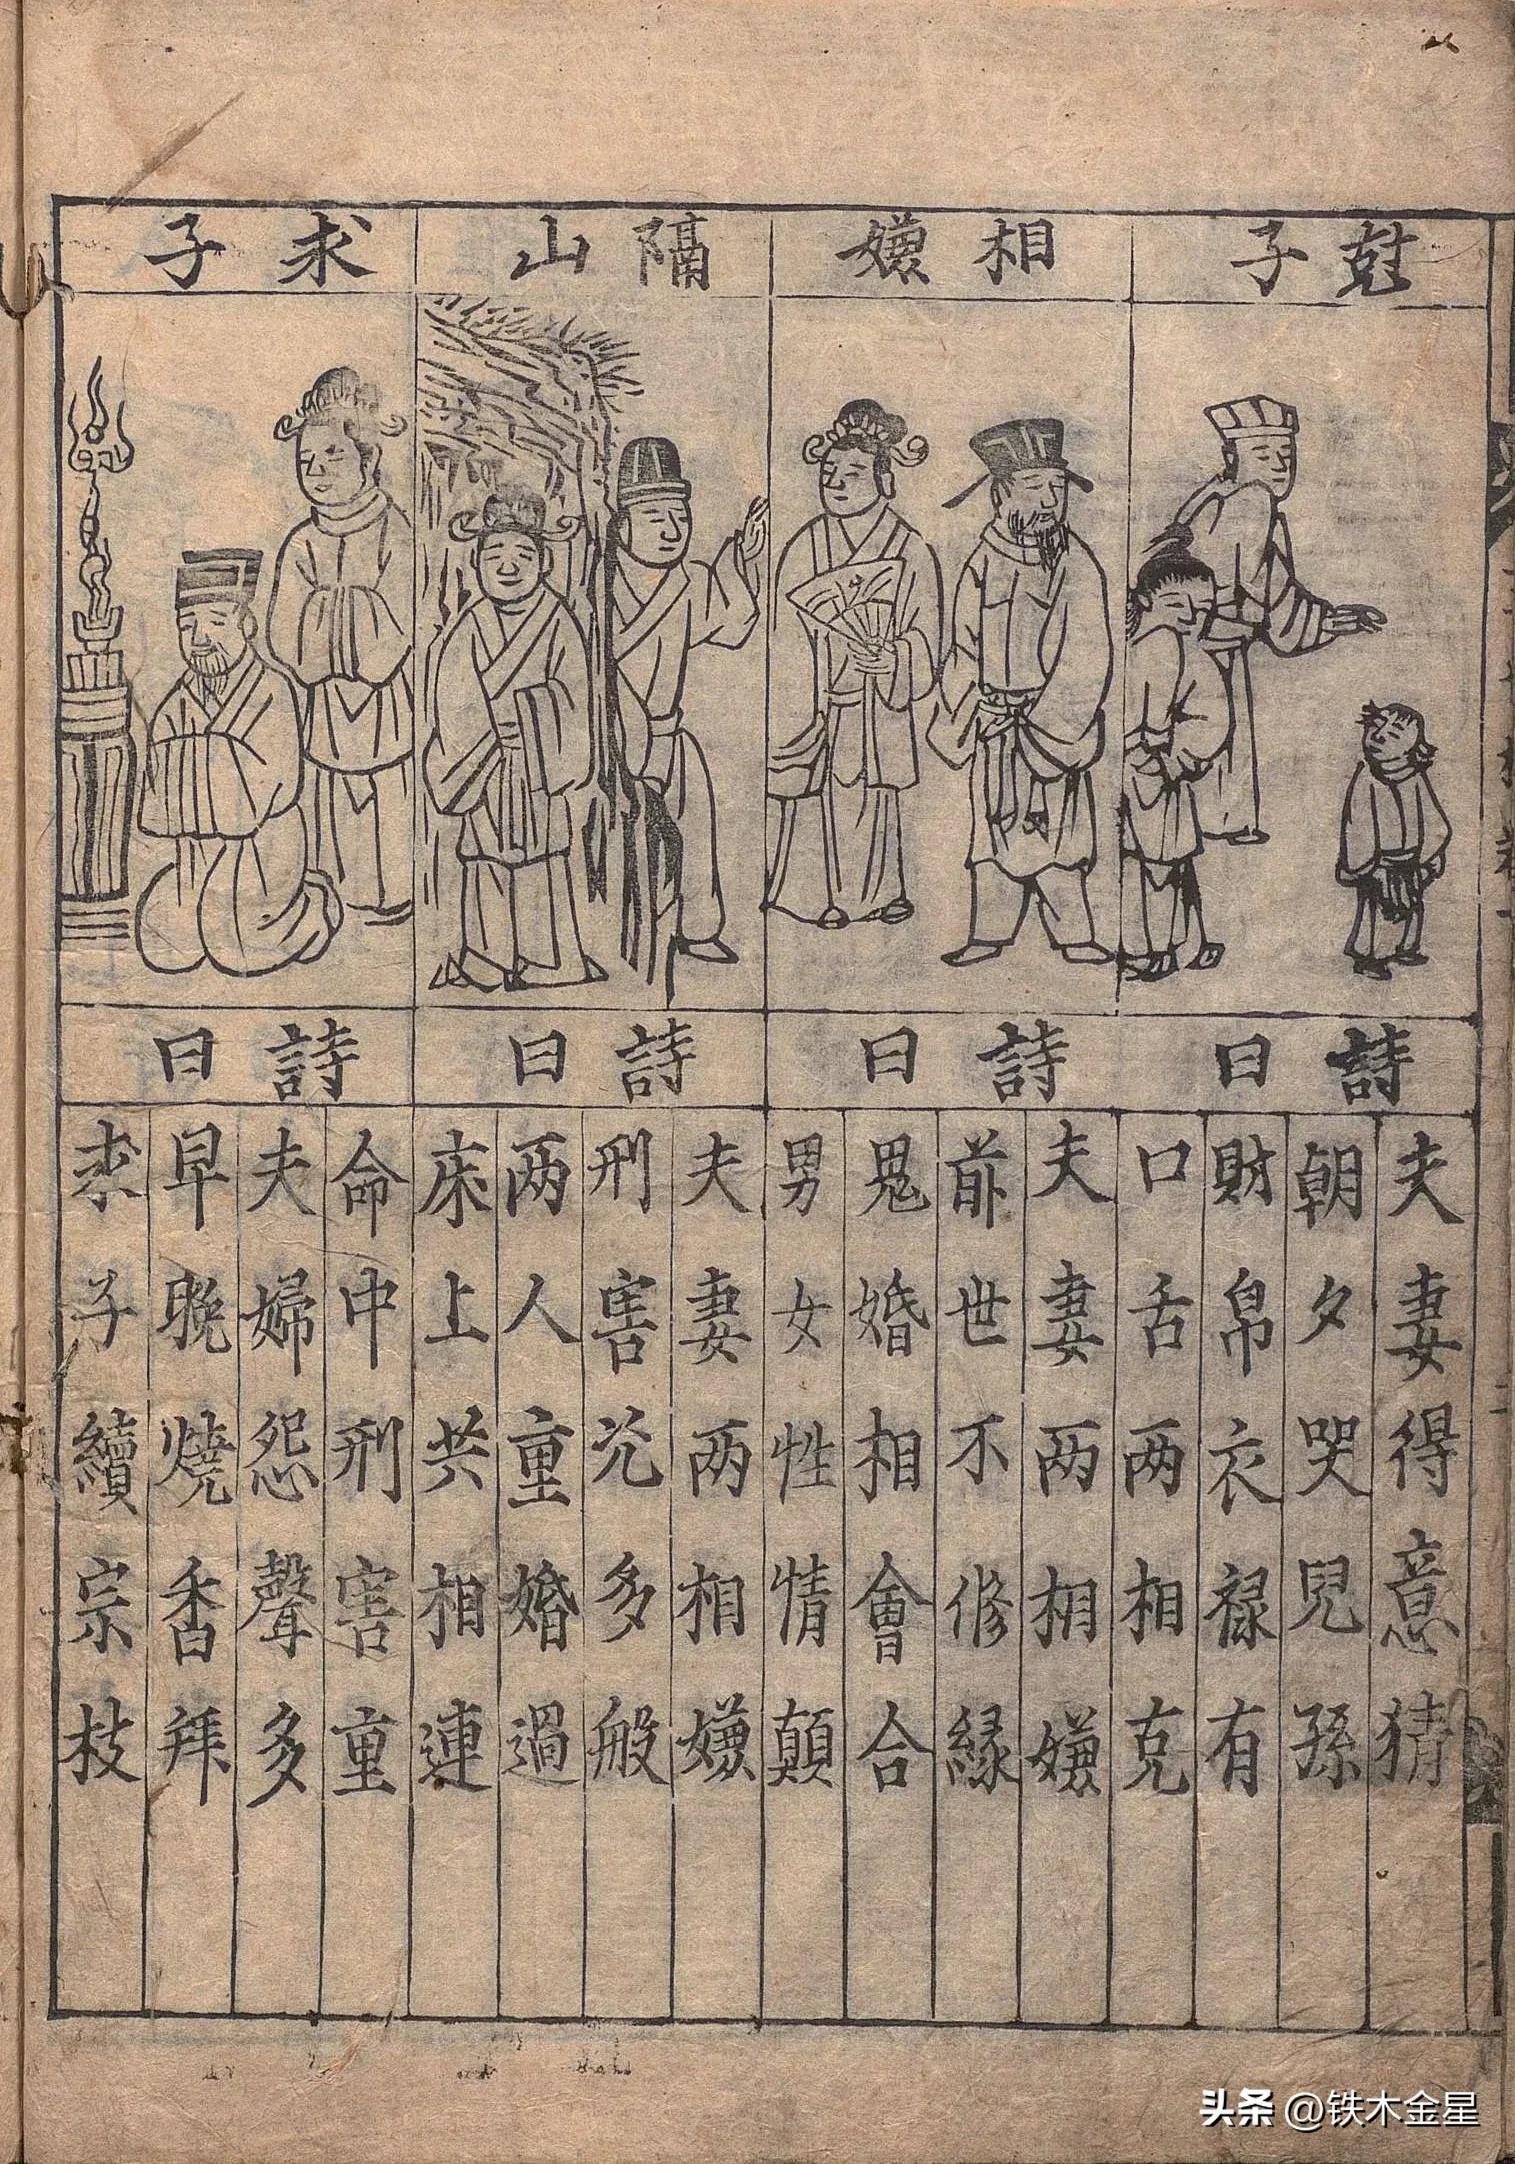 尅子
相嫌
隔山
求子
詩曰
夫妻得意猜
朝夕哭兒孫
財帛衣禄有
口舌两相克
詩曰
夫妻两相嫌
前世不修緣
鬼婚相會合
男女性情顛
詩曰
夫妻两相嫌
刑害災多般
两人重婚過
床上共相連
詩曰
命中刑害重
夫婦怨聲多
早晚燒香拜
求子續宗枝
头条 @铁木金星